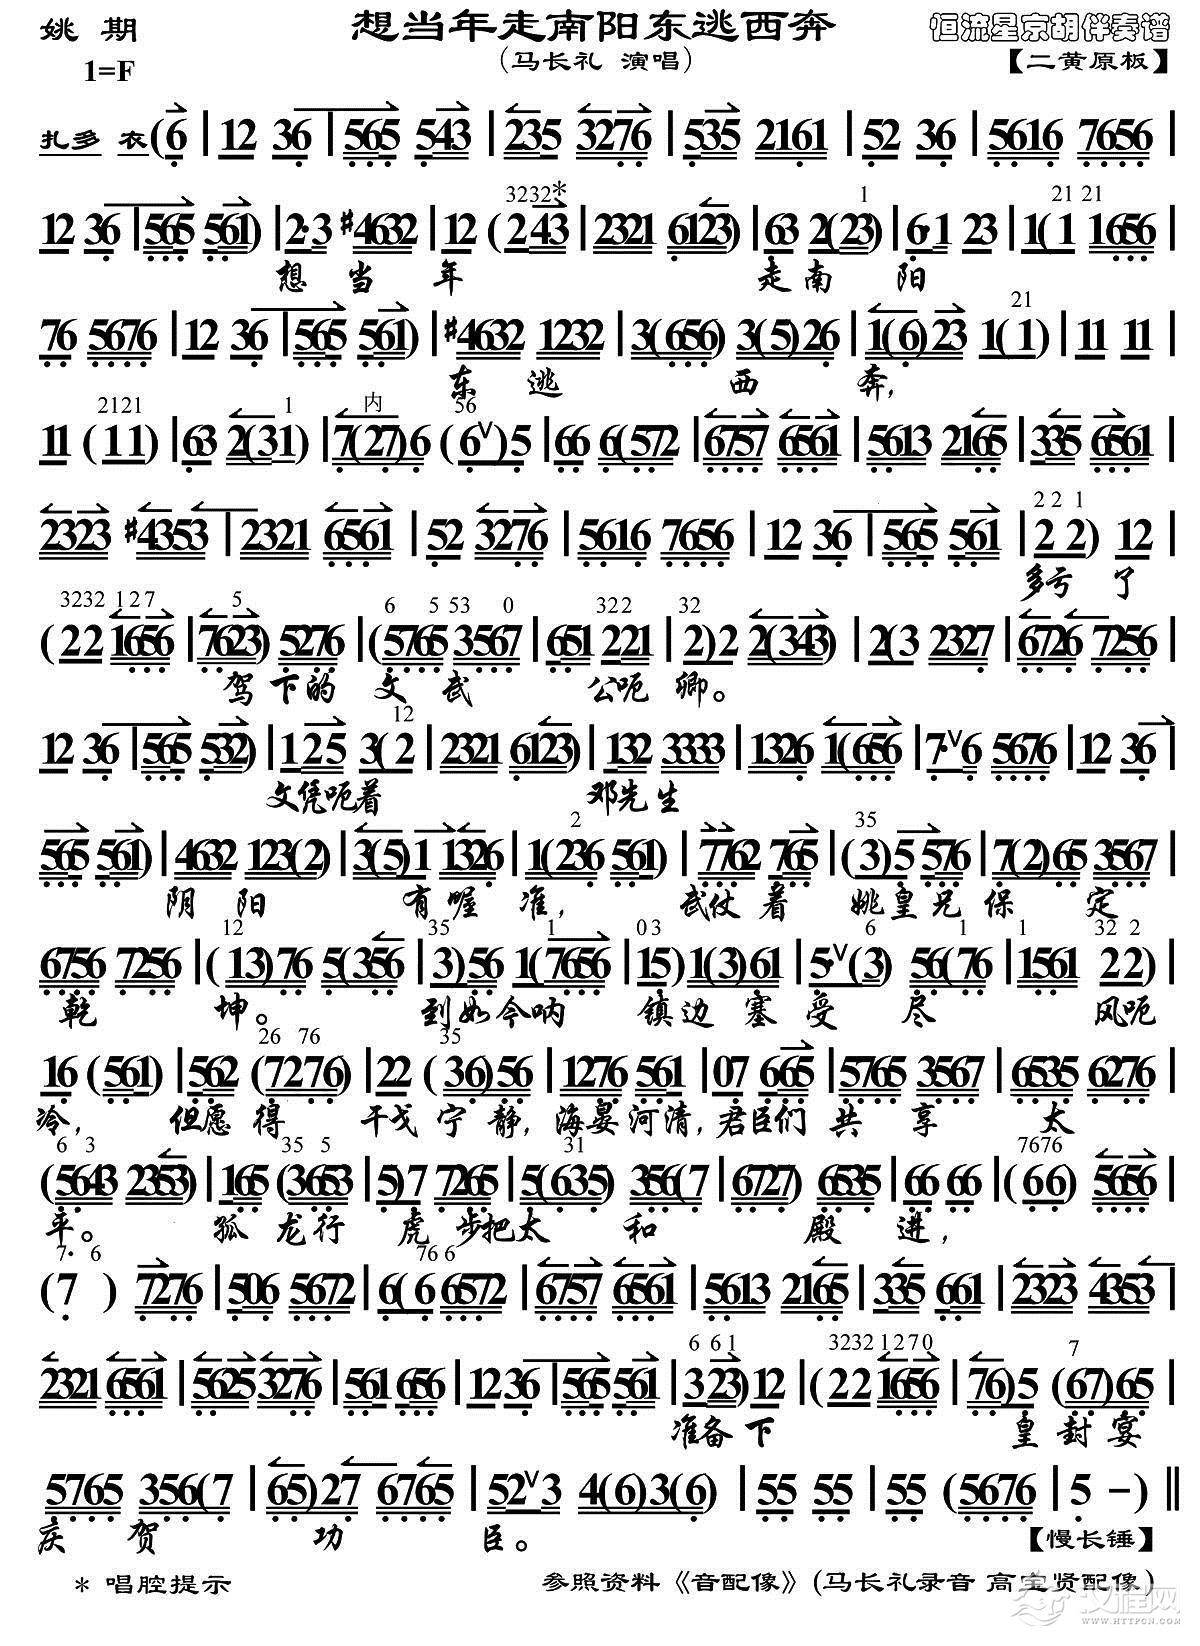 姚 期
想当年走南阳东逃西奔
恒流星京胡伴奏谱
1=F
(马长礼 演唱)
【二黄原板】
扎多 衣(6 | 12 36 | 565 543 | 235 3276 | 535 2161 | 52 36 | 5616 7656 |
3232* 1 21 21
12 36 | 565 561) | 2·3 #4632 | 12 (243 | 2321 6123) | 63 2(23) | 6·1 23 | 1(1 1656 |
想 当 年 走 南 阳
21
76 5676 | 12 36 | 565 561) | #4632 1232 | 3(656) 3(5)26 | 1(6)23 1(1) | 11 11 |
东 逃 西 奔,
2121 1 内 56
11 (11) | 63 2(31) | 7(27)6 (6∨)5 | 66 6(572 | 6757 6561 | 5613 2165 | 335 6561 |
2 2 1
2323 #4353 | 2321 6561 | 52 3276 | 5616 7656 | 12 36 | 565 561 | 2 2) 12 |
多亏 了
3232 1 2 7 5 6 5 53 0 322 32
(22 1656 | 7623) 5276 | (5765 3567 | 651 221 | 2)2 2(343) | 2(3 2327 | 6726 7256 |
驾 下 的 文 武 公呃 卿。
12
12 36 | 565 532) | 1 2 5 3(2 | 2321 6123) | 132 3333 | 1326 1(656 | 7·∨6 5676 | 12 36 |
文凭呃着 邓先生
2 35
565 561) | 4632 123(2) | 3(5)1 1326 | 1(236 561) | 7762 765 | (3)5 576 | 7(2)65 3567 |
阴 阳 有 喔 准, 武仗 着 姚皇兄 保 定
12 35 1 0 3 6 1 1 32 2
6756 7256 | (13)76 5(356 | 3)56 1(7656 | 15)1(3)61 | 5∨(3) 56(76 | 1561 22) |
乾 坤。 到如今呐 镇边 塞 受 尽 风呃
26 76 35
16 (561) | 562 (7276) | 22 (36)56 | 1276 561 | 07 665 | 5765 3567 | 6535 6276 |
冷, 但愿 得 干戈 宁 静, 海晏河清, 君臣们 共 享 太
6 3 35 5 31 7676
(5643 2353) | 165 (3653 | 5)7 7265 | 5(635) 356(7 | 6727) 6535 | 66 66 | (66) 5656 |
平。 孤 龙行 虎 步把太 和 殿 进,
7· 6 76 6
(7 ) 7276 | 506 5672 | 6(6 6572 | 6757 6561 | 5613 2165 | 335 661 | 2323 4353 |
6 6 1 3232 1 2 7 0 7
2321 6561 | 5625 3276 | 561 656 | 12 36 | 565 561 | 3 23)12 | (22 1656 | 76)5 (67)65 |
准备 下 皇 封 宴
5765 356(7 | 65)27 6765 | 52∨3 4(6)3(6) | 55 55 | 55 (5676 | 5 -) ‖
庆 贺 功 臣。
【慢长锤】
* 唱腔提示
参照资料《音配像》(马长礼录音 高宝贤配像)
汉程网
WWW.HTTPCN.COM